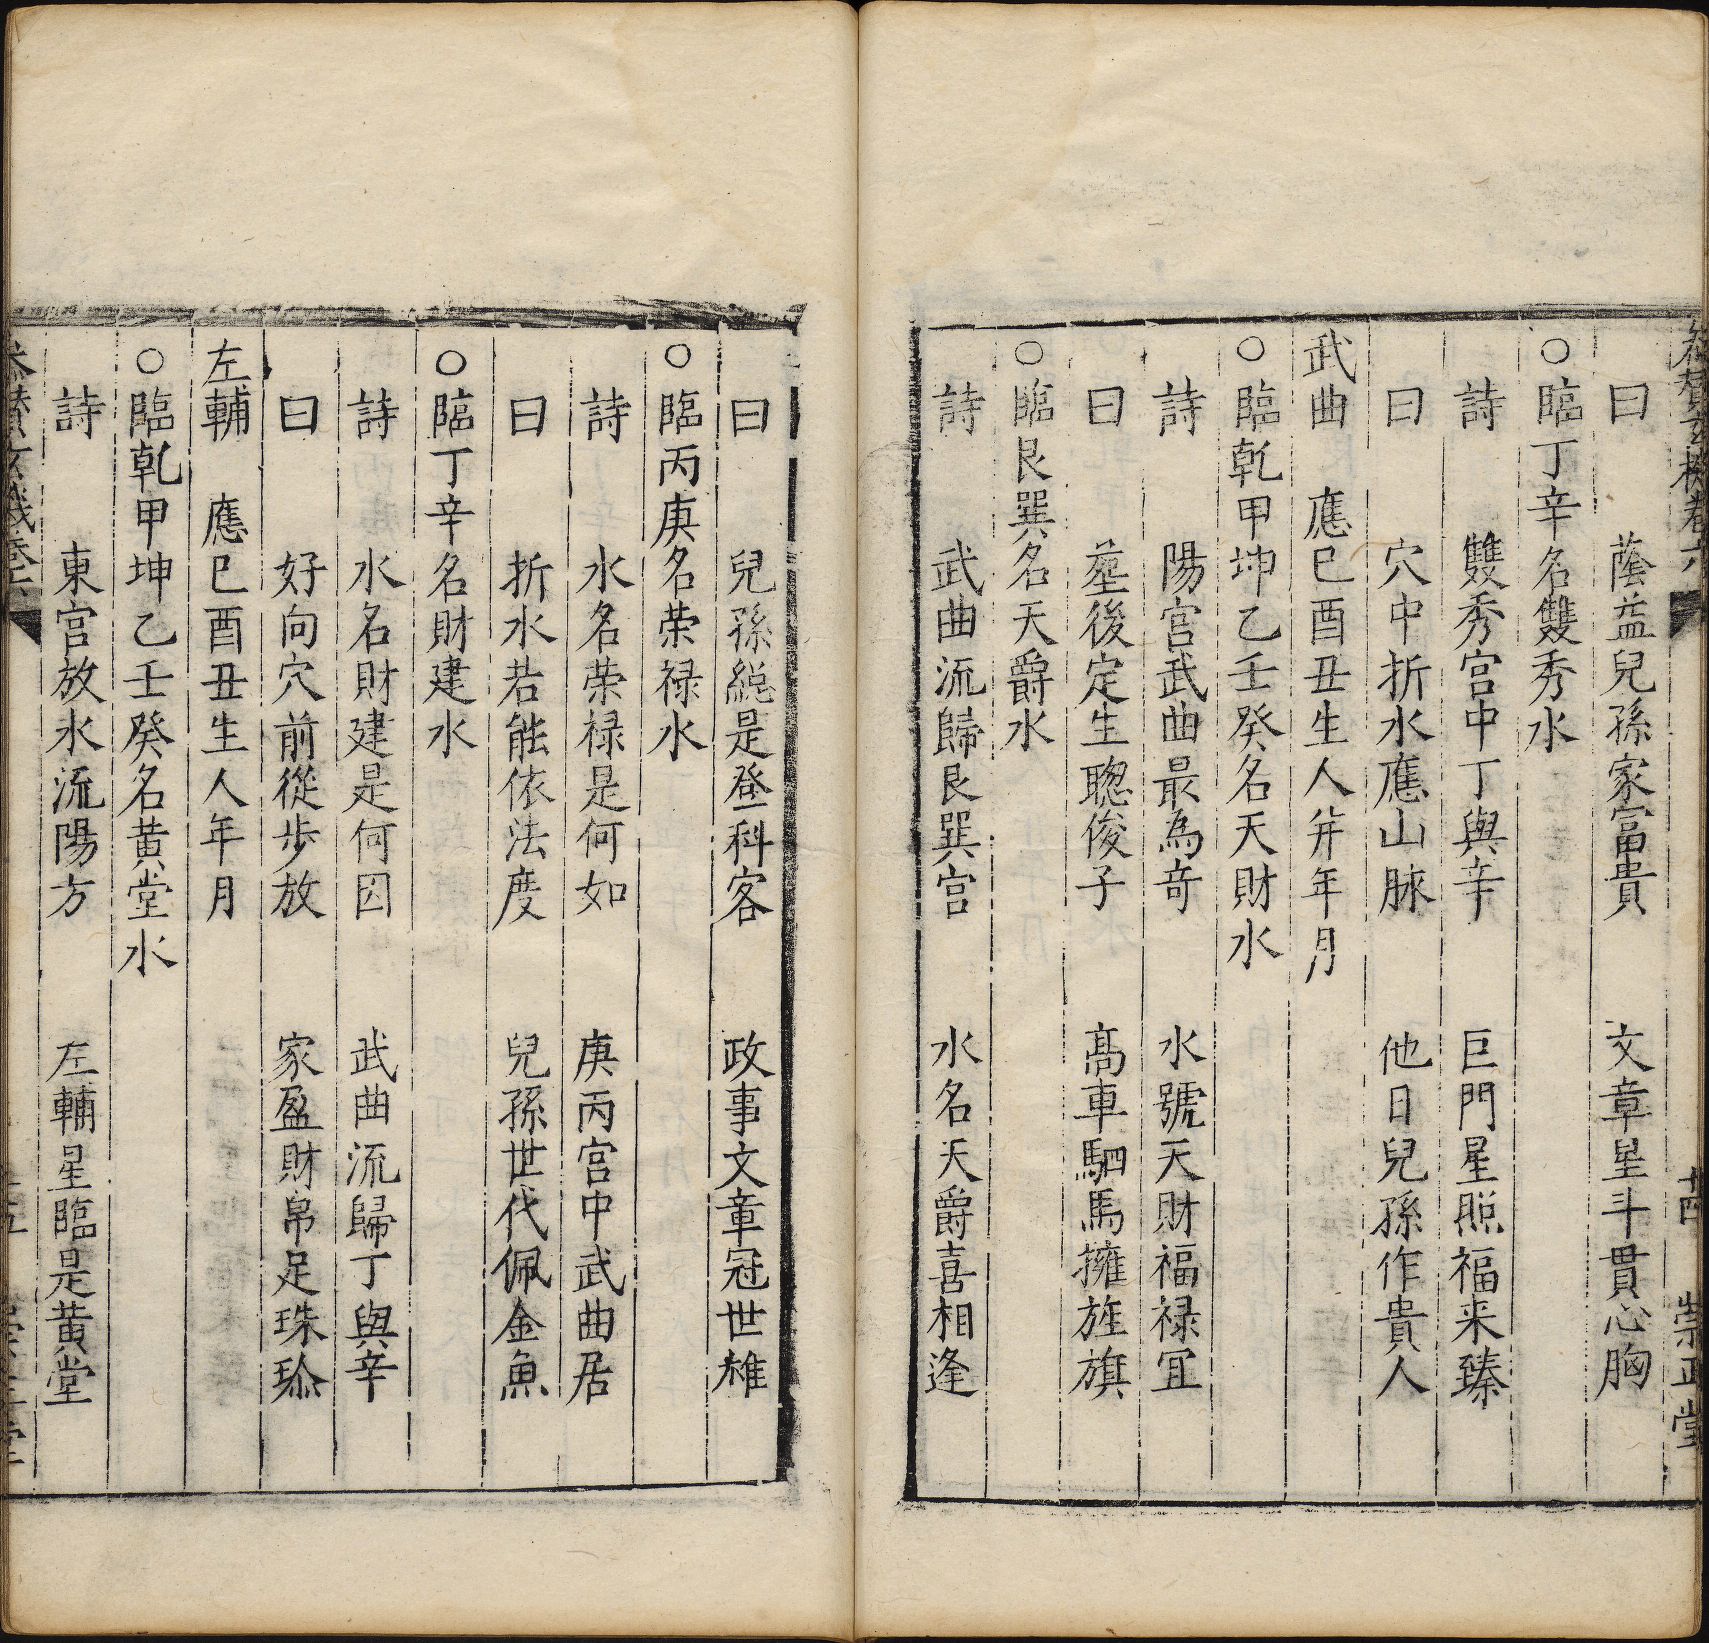 曰 蔭益兒孫家富貴 文章星斗貫心胸
○臨丁辛名雙秀水
詩 雙秀宫中丁與辛 巨門星照福来臻
曰 穴中折水應山脉 他日兒孫作貴人
武曲 應巳酉丑生人并年月
○臨乾甲坤乙壬癸名天財水
詩 陽宫武曲最為竒 水號天財福禄冝
曰 塟後定生聰俊子 髙車駟馬擁旌旗
○臨艮巽名天爵水
詩 武曲流歸艮巽宫 水名天爵喜相逢
曰 兒孫緫是登科客 政事文章冠世雄
○臨丙庚名荣禄水
詩 水名荣禄是何如 庚丙宫中武曲居
曰 折水若能依法度 兒孫世代佩金魚
○臨丁辛名財建水
詩 水名財建是何因 武曲流歸丁與辛
曰 好向穴前從步放 家盈財帛足珠珎
左輔 應巳酉丑生人年月
○臨乾甲坤乙壬癸名黄堂水
詩 東宫放水流陽方 左輔星臨是黄堂
卷六
十四 崇正堂